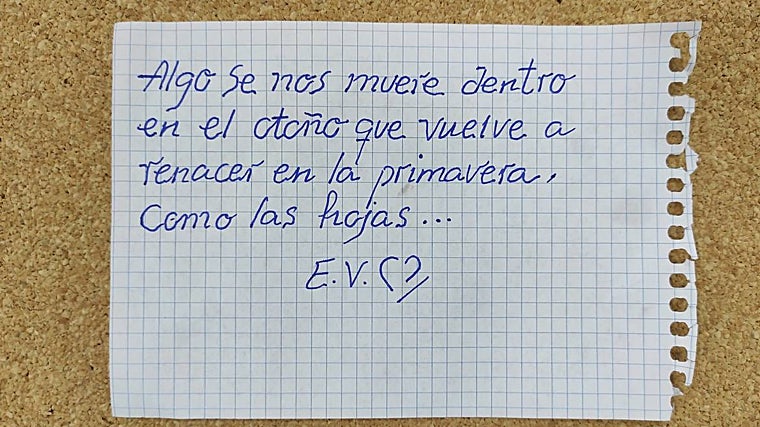 Algo se nos muere dentro
en el otoño que vuelve a
renacer en la primavera,
Como las hojas...
E.V.